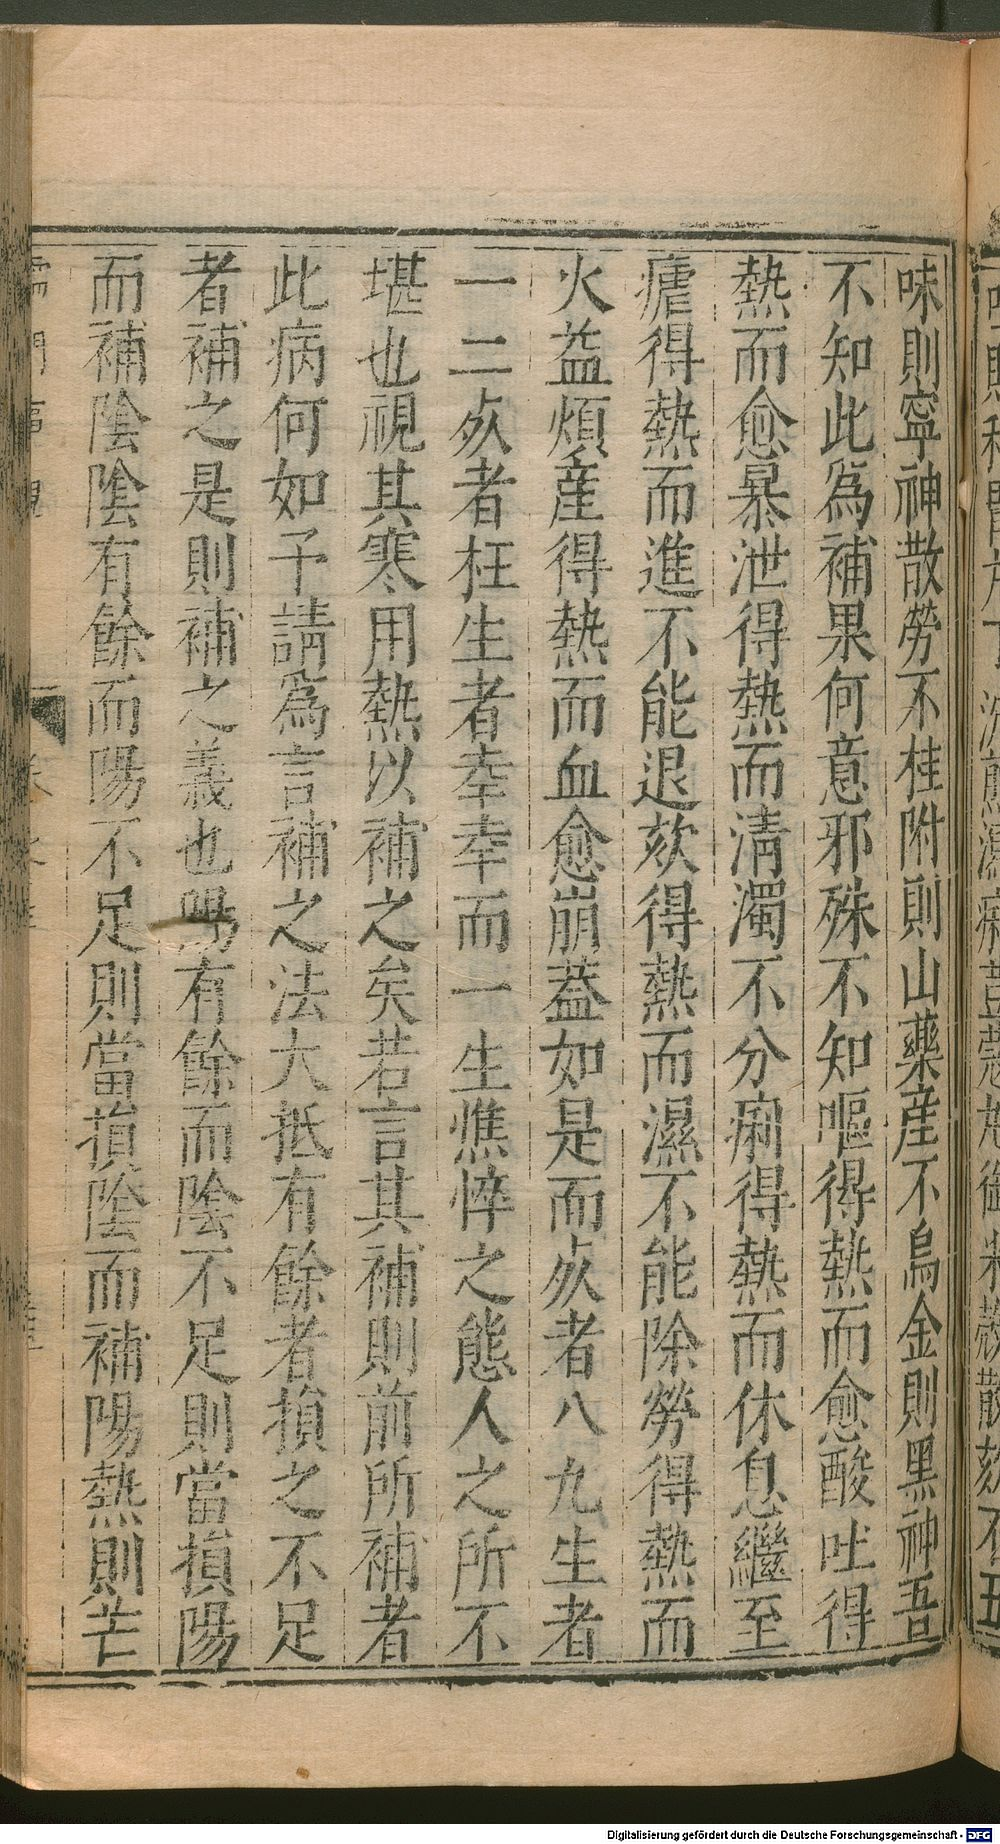 味則寧神散勞不桂附則山藥産不烏金則黑神吾
不知此為補果何意邪殊不知嘔得熱而愈酸吐得
熱而愈暴泄得熱而清濁不分痢得熱而休息繼至
瘧得熱而進不能退欬得熱而濕不能除勞得熱而
火益煩產得熱而血愈崩蓋如是而死者八九生者
一二死者枉生者幸幸而一生憔悴之態人之所不
堪也視其寒用熱以補之矣若言其補則前所補者
此病何如予請為言補之法大抵有餘者損之不足
者補之是則補之義也陽有餘而陰不足則當損陽
而補陰陰有餘而陽不足則當損陰而補陽熱則芒
Digitalisierung gefördert durch die Deutsche Forschungsgemeinschaft - DFG